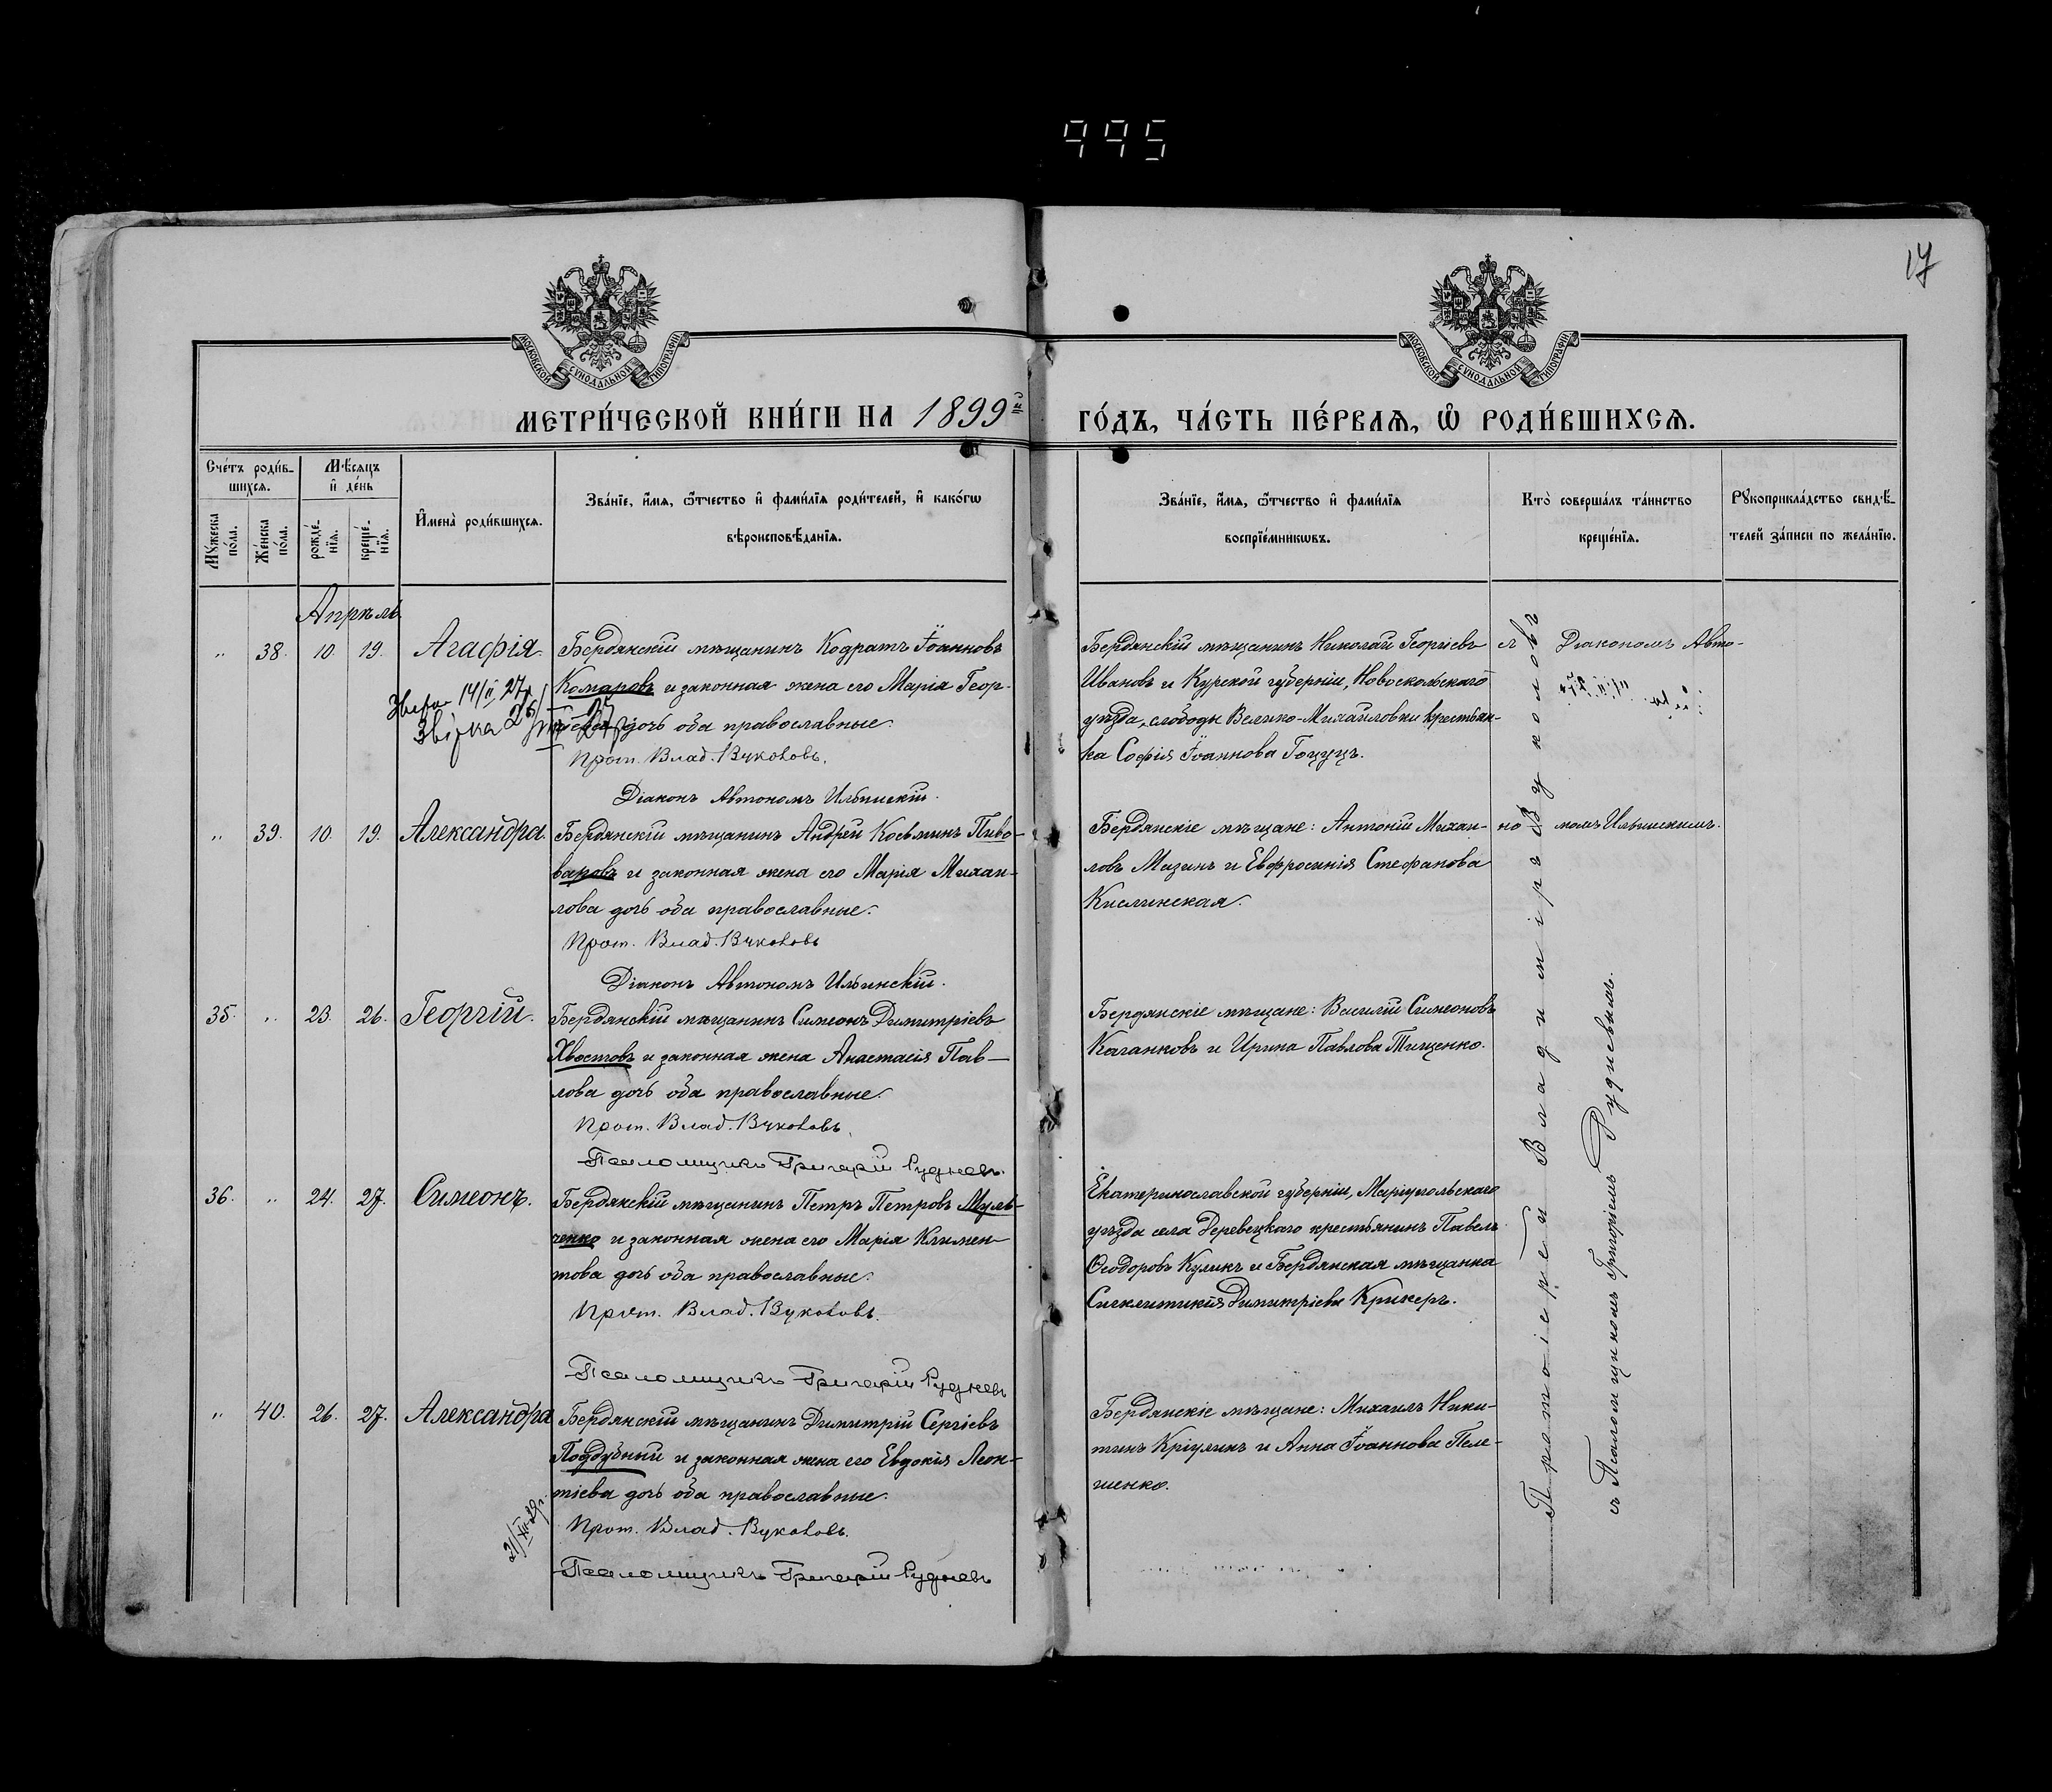 995
17
МОСКОВСКОЙ СУНОДАЛЬНОЙ ТИПОГРАФІИ
МОСКОВСКОЙ СУНОДАЛЬНОЙ ТИПОГРАФІИ
МЕТРИ́ЧЕСКОЙ КНИ́ГИ НА 1899й ГО́ДЪ, ЧА́СТЬ ПЕ́РВАѦ, Ѽ РОДИ́ВШИХСѦ.
Сче́тъ роди́в-
шихсѧ.
Мѣ́сяцъ
и҆ де́нь
Мꙋ́жеска по́ла.
Же́нска по́ла.
рожде́-
нїѧ.
креще́-
нїѧ.
И҆мена̀ роди́вшихсѧ.
Зва́нїе, и҆́мѧ, ѻ҆́тчество и҆ фами́лїѧ роди́телей, и҆ како́гѡ
вѣроисповѣ́данїѧ.
Зва́нїе, и҆́мѧ, ѻ҆́тчество и҆ фами́лїѧ
воспрїе́мникѡвъ.
Кто̀ соверша́лъ та́инство
креще́нїѧ.
Рꙋкоприкла́дство свидѣ́-
телей за́писи по жела́нїю.
Апрѣль
" 38. 10. 19. Агафія.
Бердянскій мѣщанинъ Кодратъ Іоанновъ
Комаровъ и законная жена его Марія Геор-
гіева дочь оба православные.
Прот. Влад. Вуколовъ.
Діаконъ Автономъ Ильинскій.
14/II 27
Звірка
Бердянскій мѣщанинъ Николай Георгіевъ
Ивановъ и Курской губерніи, Новоскольскаго
уѣзда, слободы Велико-Михайловки крестьян-
ка Софія Іоаннова Гоцуцъ.
" 39. 10. 19. Александра.
Бердянскій мѣщанинъ Андрей Косьминъ Пиво-
варовъ и законная жена его Марія Михаи-
лова дочь оба православные.
Прот. Влад. Вуколовъ
Діаконъ Автономъ Ильинскій.
Бердянскіе мѣщане: Антоній Михаи-
ловъ Мазинъ и Евфросинія Стефанова
Кислинская.
35. " 23. 26. Георгій.
Бердянскій мѣщанинъ Симеонъ Димитріевъ
Хвостовъ и законная жена Анастасія Пав-
лова дочь оба православные.
Прот. Влад. Вуколовъ.
Псаломщикъ Григорій Рудневъ.
Бердянскіе мѣщане: Василій Симеоновъ
Каганковъ и Ирина Павлова Тищенко.
36. " 24. 27. Симеонъ.
Бердянскій мѣщанинъ Петръ Петровъ Муль-
ченко и законная жена его Марія Климен-
това дочь оба православные.
Прот. Влад. Вуколовъ.
Псаломщикъ Григорій Рудневъ
Екатеринославской губерніи, Маріупольскаго
уѣзда села Деревецкаго крестьянинъ Павелъ
Ѳеодоровъ Куликъ и Бердянская мѣщанка
Сигклитикія Димитріева Крикеръ.
" 40. 26. 27. Александра
Бердянскій мѣщанинъ Димитрій Сергіевъ
Поддубный и законная жена его Евдокія Леон-
тіева дочь оба православные.
Прот. Влад. Вуколовъ.
Псаломщикъ Григорій Рудневъ
21/XII-29 г.
Бердянскіе мѣщане: Михаилъ Ники-
тинъ Кріулинъ и Анна Іоаннова Пеле-
шенко.
Протоіерей Владиміръ Вуколовъ
съ Діакономъ Авто-
но момъ Ильинскимъ.
съ Псаломщикомъ Григоріемъ Рудневымъ.